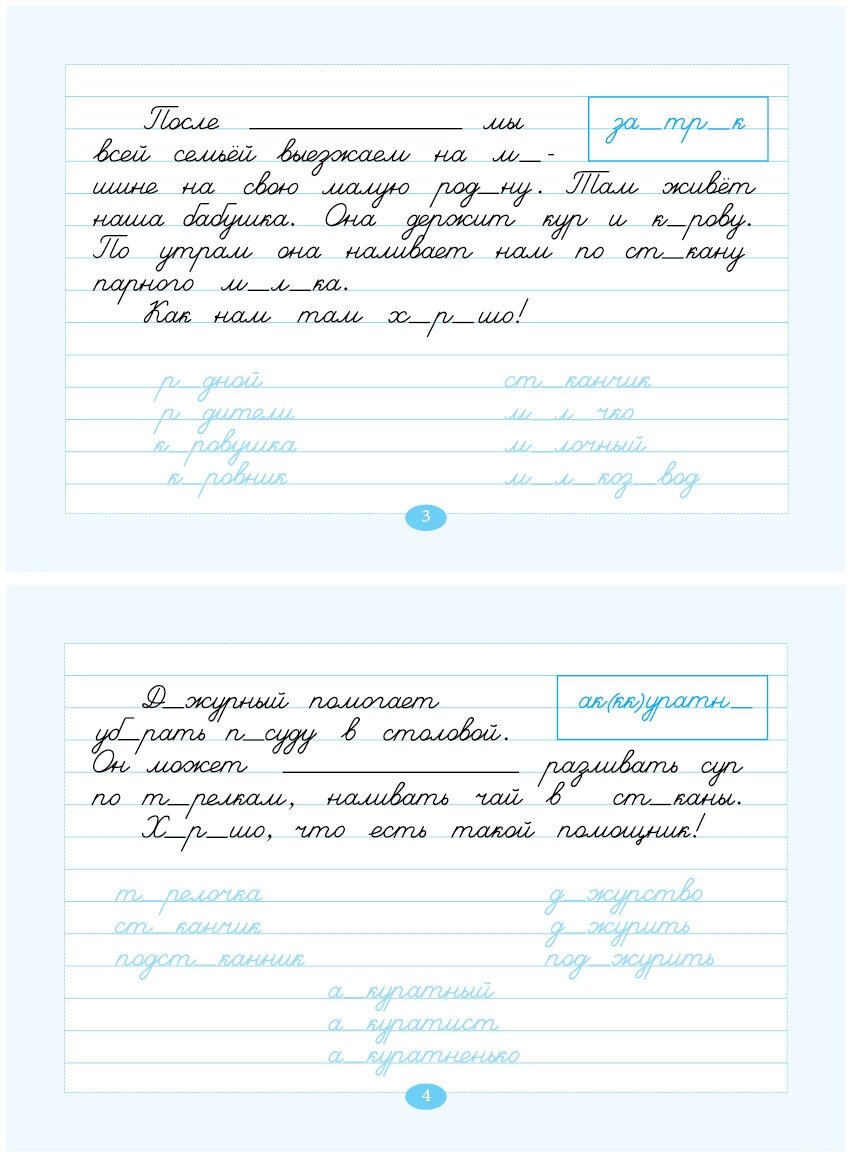 После ________________ мы
за_тр_к
всей семьёй выезжаем на м_-
шине на свою малую род_ну. Там живёт
наша бабушка. Она держит кур и к_рову.
По утрам она наливает нам по ст_кану
парного м_л_ка.
Как нам там х_р_шо!
р_дной ст_канчик
р_дители м_л_чко
к_ровушка м_лочный
к_ровник м_л_коз_вод
3
Д_журный помогает
ак(кк)уратн_
уб_рать п_суду в столовой.
Он может ________________ разливать суп
по т_релкам, наливать чай в ст_каны.
Х_р_шо, что есть такой помощник!
т_релочка д_журство
ст_канчик д_журить
подст_канник под_журить
а_куратный
а_куратист
а_куратненько
4